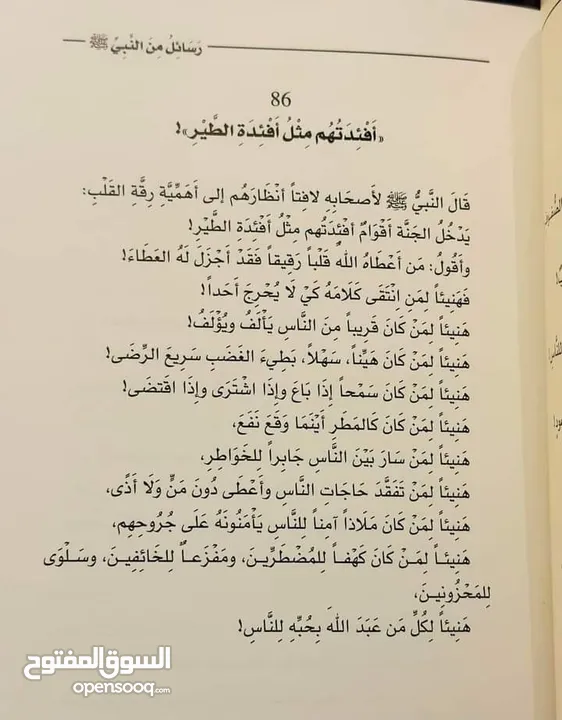 رَسَائِلُ مِنَ النَّبِيِّ ﷺ
86
«أَفْئِدَتُهُم مِثْلُ أَفْئِدَةِ الطَّيْرِ»!
قَالَ النَّبِيُّ ﷺ لأَصحَابِهِ لافِتاً أَنْظَارَهُم إلى أَهَمِّيَّةِ رِقَّةِ القَلْبِ:
يَدْخُلُ الجَنَّةَ أَقْوَامٌ أَفْئِدَتُهم مِثْلُ أَفْئِدَةِ الطَّيْرِ!
وأَقُولُ: مَن أَعْطَاهُ اللهُ قَلْباً رَقِيقاً فَقَدْ أَجْزَلَ لَهُ العَطَاءَ!
فَهَنِيئاً لِمَنِ انْتَقَى كَلَامَهُ كَيْ لَا يُحْرِجَ أَحَداً!
هَنِيئاً لِمَنْ كَانَ قَرِيباً مِنَ النَّاسِ يَأْلَفُ ويُؤْلَفُ!
هَنِيئاً لِمَنْ كَانَ هَيِّناً، سَهْلاً، بَطِيءَ الغَضَبِ سَرِيعَ الرِّضَى!
هَنِيئاً لِمَنْ كَانَ سَمْحاً إذَا بَاعَ وإذَا اشْتَرَى وإذَا اقتَضَى!
هَنِيئاً لِمَنْ كَانَ كَالمَطَرِ أَيْنَمَا وَقَعَ نَفَعَ،
هَنِيئاً لِمَنْ سَارَ بَيْنَ النَّاسِ جَابِراً لِلخَوَاطِرِ،
هَنِيئاً لِمَنْ تَفَقَّدَ حَاجَاتِ النَّاسِ وأَعْطَى دُونَ مَنٍّ وَلَا أَذًى،
هَنِيئاً لِمَنْ كَانَ مَلَاذاً آمناً لِلنَّاسِ يَأْمَنُونَهُ عَلَى جُرُوحِهِم،
هَنِيئاً لِمَنْ كَانَ كَهْفاً لِلمُضْطَرِّينَ، ومَفْزَعاً لِلخَائِفِينَ، وسَلْوَى
لِلمَحْزُونِينَ،
هَنِيئاً لِكُلِّ مَن عَبَدَ اللهَ بِحُبِّهِ لِلنَّاسِ!
السوق المفتوح
opensooq.com